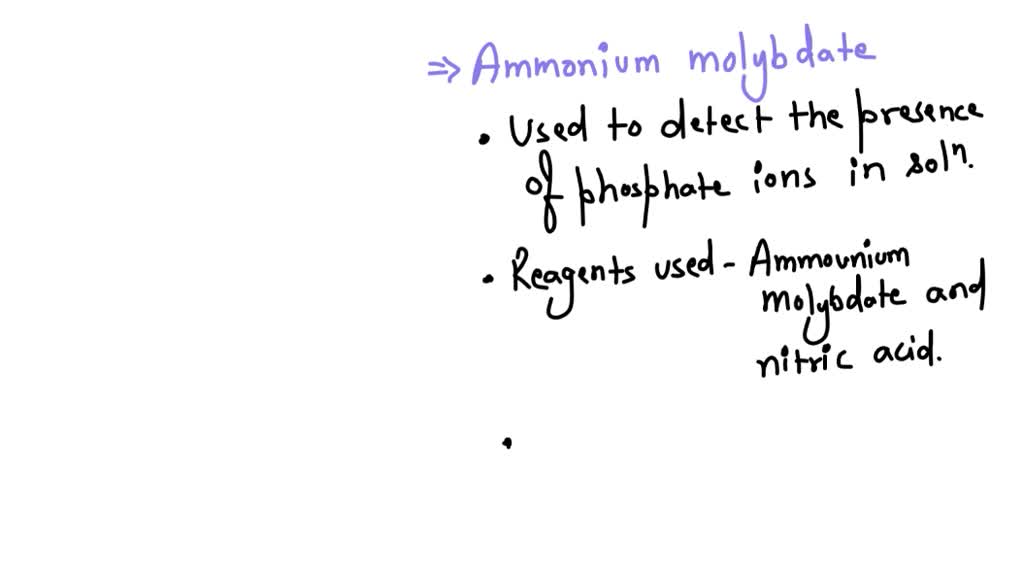 ⇒ Ammonium molybdate
• Used to detect the presence
of phosphate ions in solⁿ.
• Reagents used - Ammounium
molybdate and
nitric acid.
•